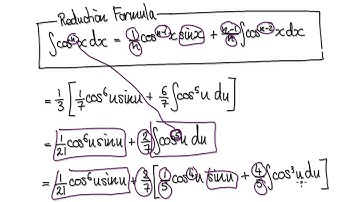 Reduction Formula
∫cosⁿx dx = 1/n cosⁿ⁻¹x sinx + n-1/n ∫cosⁿ⁻²x dx
= 1/3 [1/7 cos⁶u sinu + 6/7 ∫cos⁵u du]
= 1/21 cos⁶u sinu + 2/7 ∫cos⁵u du
= 1/21 cos⁶u sinu + 2/7 [1/5 cos⁴u sinu + 4/5 ∫cos³u du]